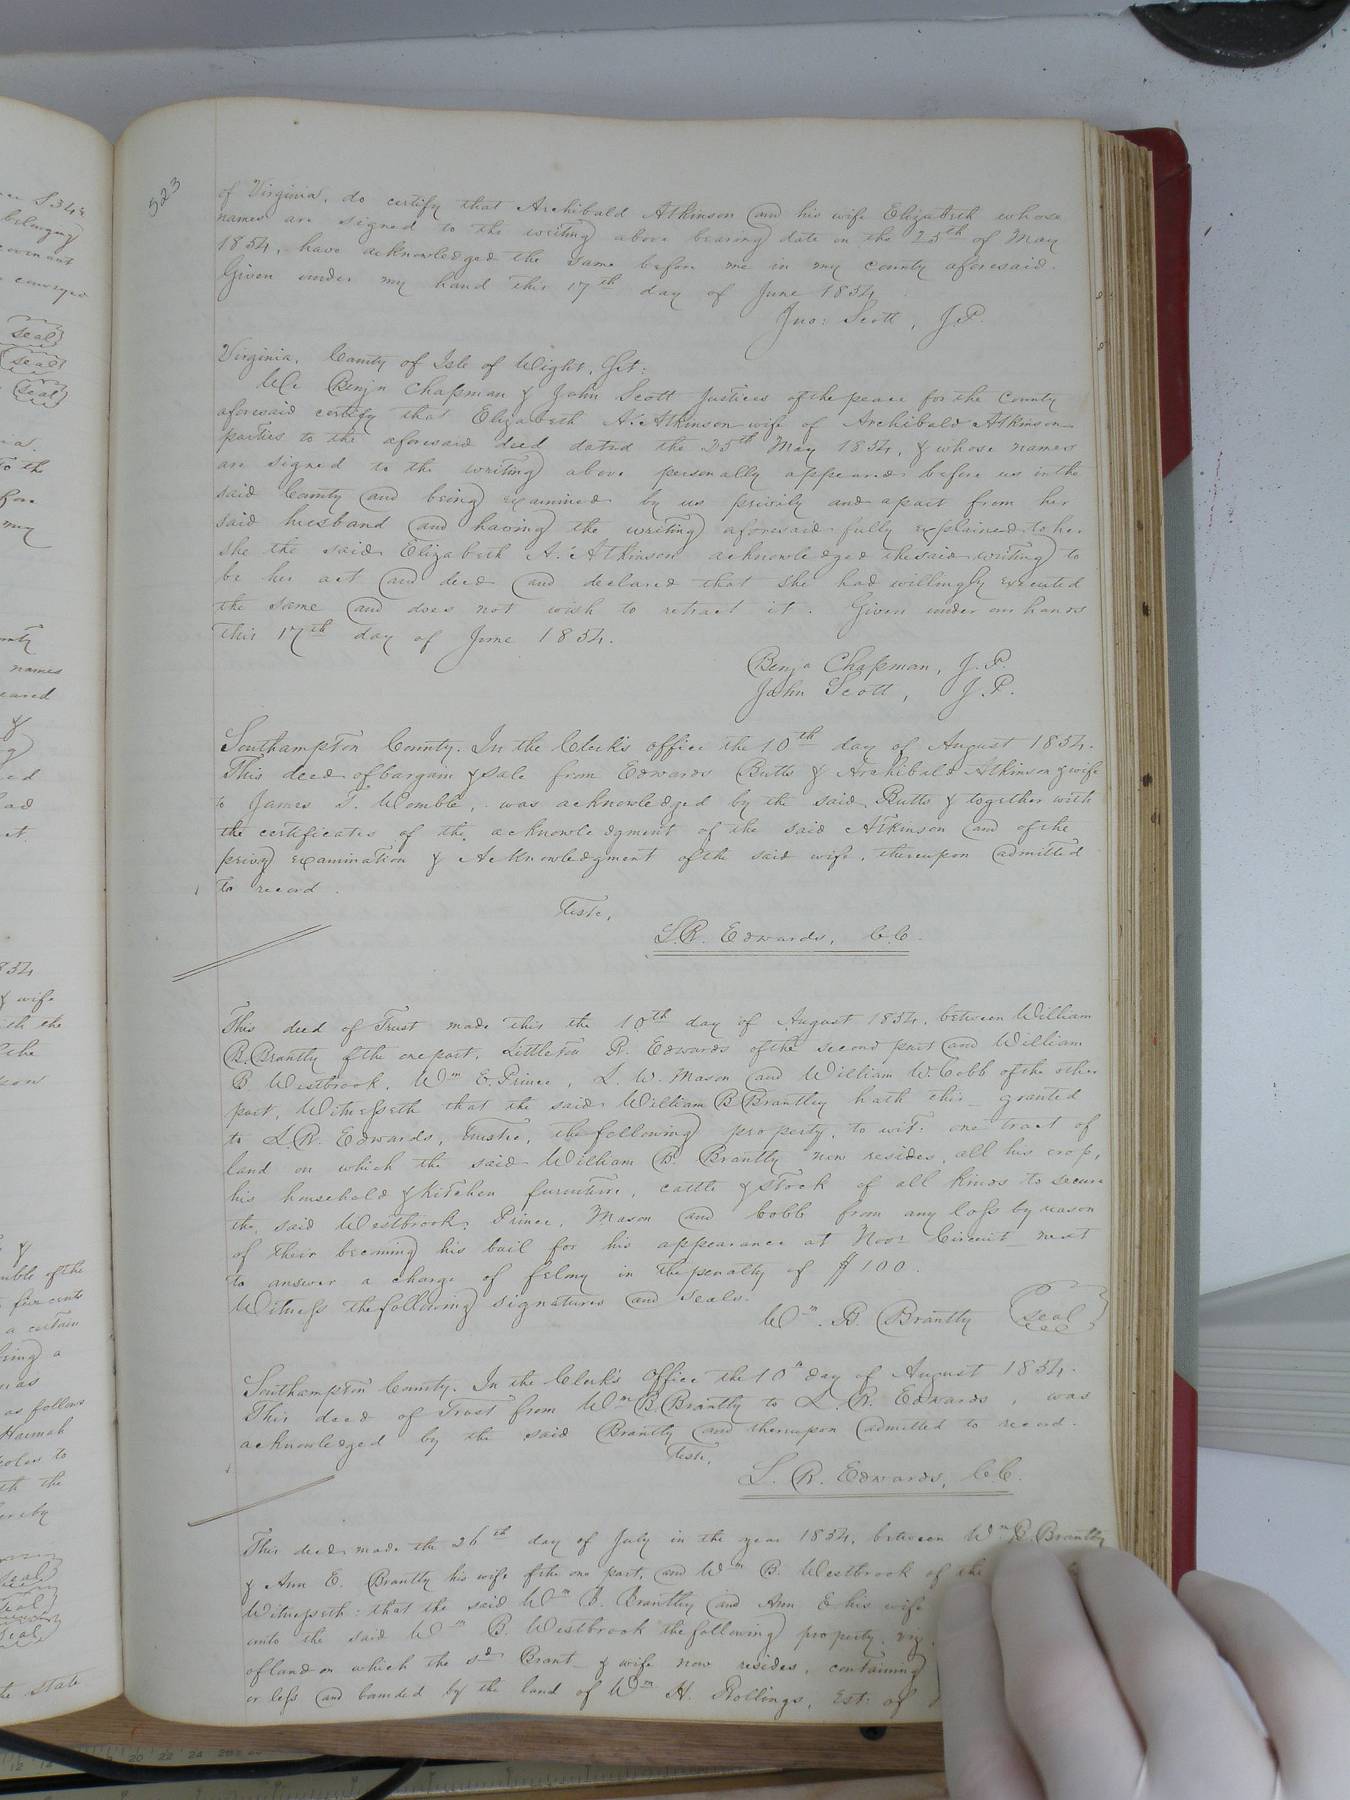 523
of Virginia, do certify that Archibald Atkinson and his wife Elizabeth whose
names are signed to the writing above bearing date on the 25th of May
1854, have acknowledged the same before me in my county aforesaid.
Given under my hand this 17th day of June 1854
Jno: Scott, J.P.
Virginia, County of Isle of Wight, Sct:
We Benjn Chapman & John Scott Justices of the peace for the County
aforesaid certify that Elizabeth A. Atkinson wife of Archibald Atkinson
parties to the aforesaid deed dated the 25th May 1854, & whose names
are signed to the writing above personally appeared before us in the
said County and being examined by us privily and apart from her
said husband and having the writing aforesaid fully explained to her
she the said Elizabeth A. Atkinson acknowledged the said writing to
be her act and deed and declared that she had willingly executed
the same and does not wish to retract it. Given under our hands
this 17th day of June 1854.
Benja Chapman, J.P.
John Scott, J.P.
Southampton County. In the Clerk's office the 10th day of August 1854.
This deed of bargain & sale from Edwards Butts & Archibald Atkinson & wife
to James T. Womble, was acknowledged by the said Butts & together with
the certificates of the acknowledgment of the said Atkinson and of the
privy examination & Acknowledgment of the said wife, thereupon admitted
to record.
Teste,
L.R. Edwards, C.C.
This deed of Trust made this the 10th day of August 1854, between William
B. Brantly of the one part, Littleton R. Edwards of the second part and William
B. Westbrook, Wm E. Prince, L. W. Mason and William W. Cobb of the other
part, Witnesseth that the said William B Brantley hath this granted
to L.R. Edwards, trustee, the following property, to wit: one tract of
land on which the said William B. Brantly now resides, all his crop,
his household & kitchen furniture, cattle & stock of all kinds to secure
the said Westbrook, Prince, Mason and Cobb from any loss by reason
of their becoming his bail for his appearance at Novr Circuit next
to answer a charge of felony in the penalty of $100.
Witness the following signatures and seals.
Wm. B. Brantly seal
Southampton County. In the Clerk's Office the 10th day of August 1854.
This deed of Trust from Wm B. Brantly to L. R. Edwards, was
acknowledged by the said Brantly and thereupon admitted to record.
Teste,
L. R. Edwards, C.C.
This deed made the 26th day of July in the year 1854, between Wm B. Brantly
& Ann E. Brantly his wife of the one part, and Wm B. Westbrook of the
Witnesseth: that the said Wm B. Brantley and Ann E his wife
unto the said Wm B. Westbrook the following property, viz,
of land on which the sd Brant & wife now resides, containing
or less and bounded by the land of Wm H. Rollings, Est: of